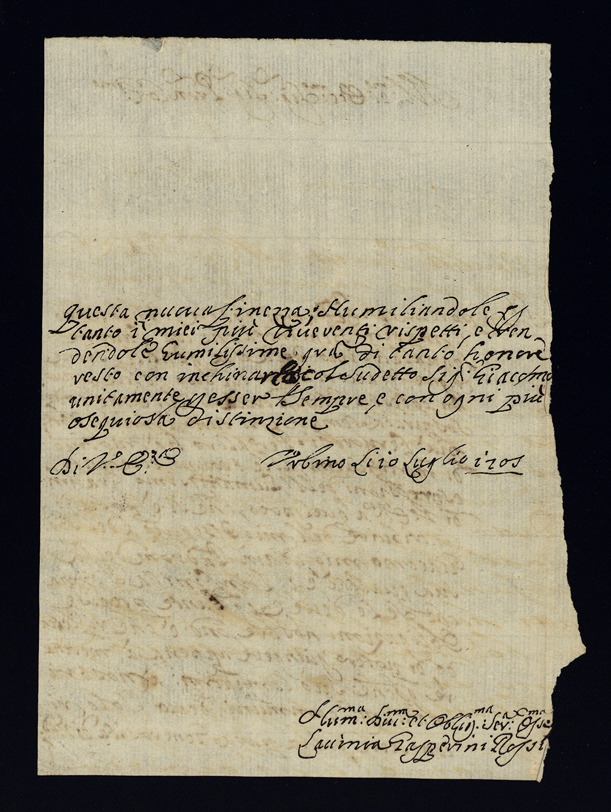 questa nuova finezza; Humiliandole p
tanto i miei più riverenti rispetti, e ren
dendole humilissime gra di tanto honore
resto con inchinarle col sudetto Sigr Giacomo
unitamente p esser sempre, e con ogni più
osequiosa distinzione
Di V. E.
Urbino li 10 Luglio 1705
Humma Divma et Obligma Serva Ossema
Lavinia Gasperini Rossi